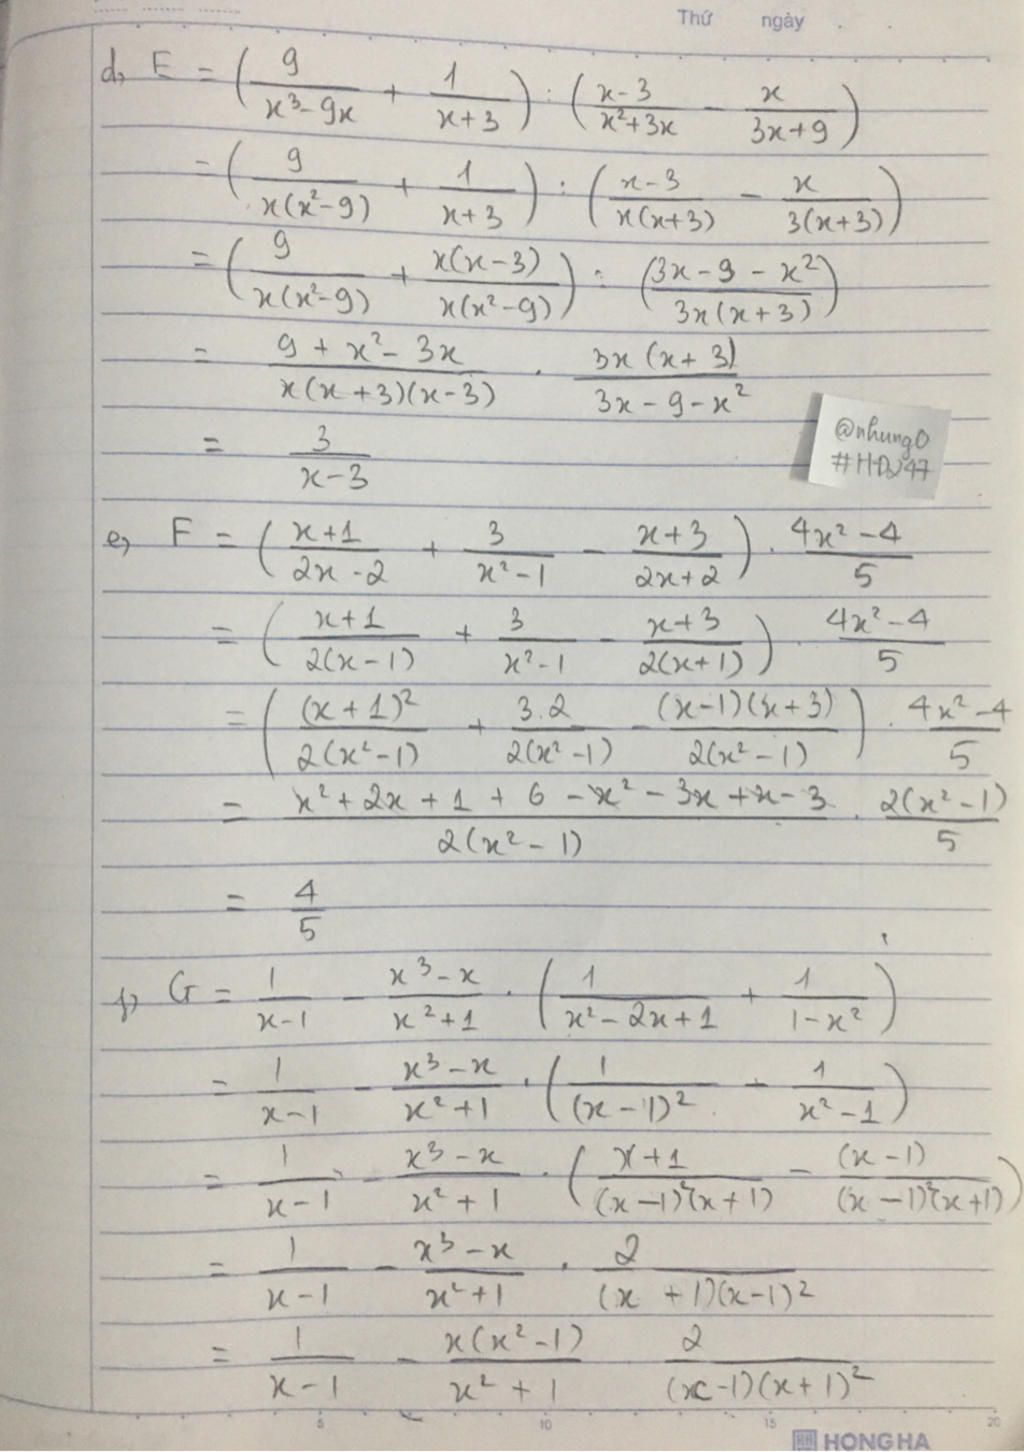 Thứ ngày
d, E = (9/(x³-9x) + 1/(x+3)) : ((x-3)/(x²+3x) - x/(3x+9))
= (9/(x(x²-9)) + 1/(x+3)) : ((x-3)/(x(x+3)) - x/(3(x+3)))
= (9/(x(x²-9)) + x(x-3)/(x(x²-9))) : ((3x-9-x²)/(3x(x+3)))
= (9+x²-3x)/(x(x+3)(x-3)) . 3x(x+3)/(3x-9-x²)
= 3/(x-3)
@nhung0
e, F = ((x+1)/(2x-2) + 3/(x²-1) - (x+3)/(2x+2)) . (4x²-4)/5
= ((x+1)/(2(x-1)) + 3/(x²-1) - (x+3)/(2(x+1))) . (4x²-4)/5
= ((x+1)²/(2(x²-1)) + 3.2/(2(x²-1)) - (x-1)(x+3)/(2(x²-1))) . (4x²-4)/5
= (x²+2x+1+6-x²-3x+x-3)/(2(x²-1)) . 2(x²-1)/5
= 4/5
f, G = 1/(x-1) - (x³-x)/(x²+1) . (1/(x²-2x+1) + 1/(1-x²))
= 1/(x-1) - (x³-x)/(x²+1) . (1/(x-1)² - 1/(x²-1))
= 1/(x-1) - (x³-x)/(x²+1) . ((x+1)/((x-1)²(x+1)) - (x-1)/((x-1)²(x+1)))
= 1/(x-1) - (x³-x)/(x²+1) . 2/((x+1)(x-1)²)
= 1/(x-1) - x(x²-1)/(x²+1) 2/((x-1)(x+1)²)
5 10 15 20
HH HONG HA